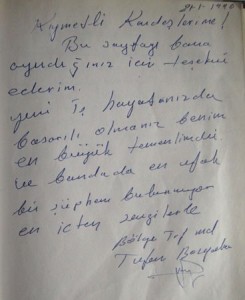 Kıymetli Kardeşlerime!
Bu sayfayı bana
ayırdığınız için teşekkür
ederim.
yeni İş hayatınızda
başarılı olmanız benim
en büyük temennimdir
ve bundada en ufak
bir şüphem bulunmuyor
en içten sevgilerle
Bölge